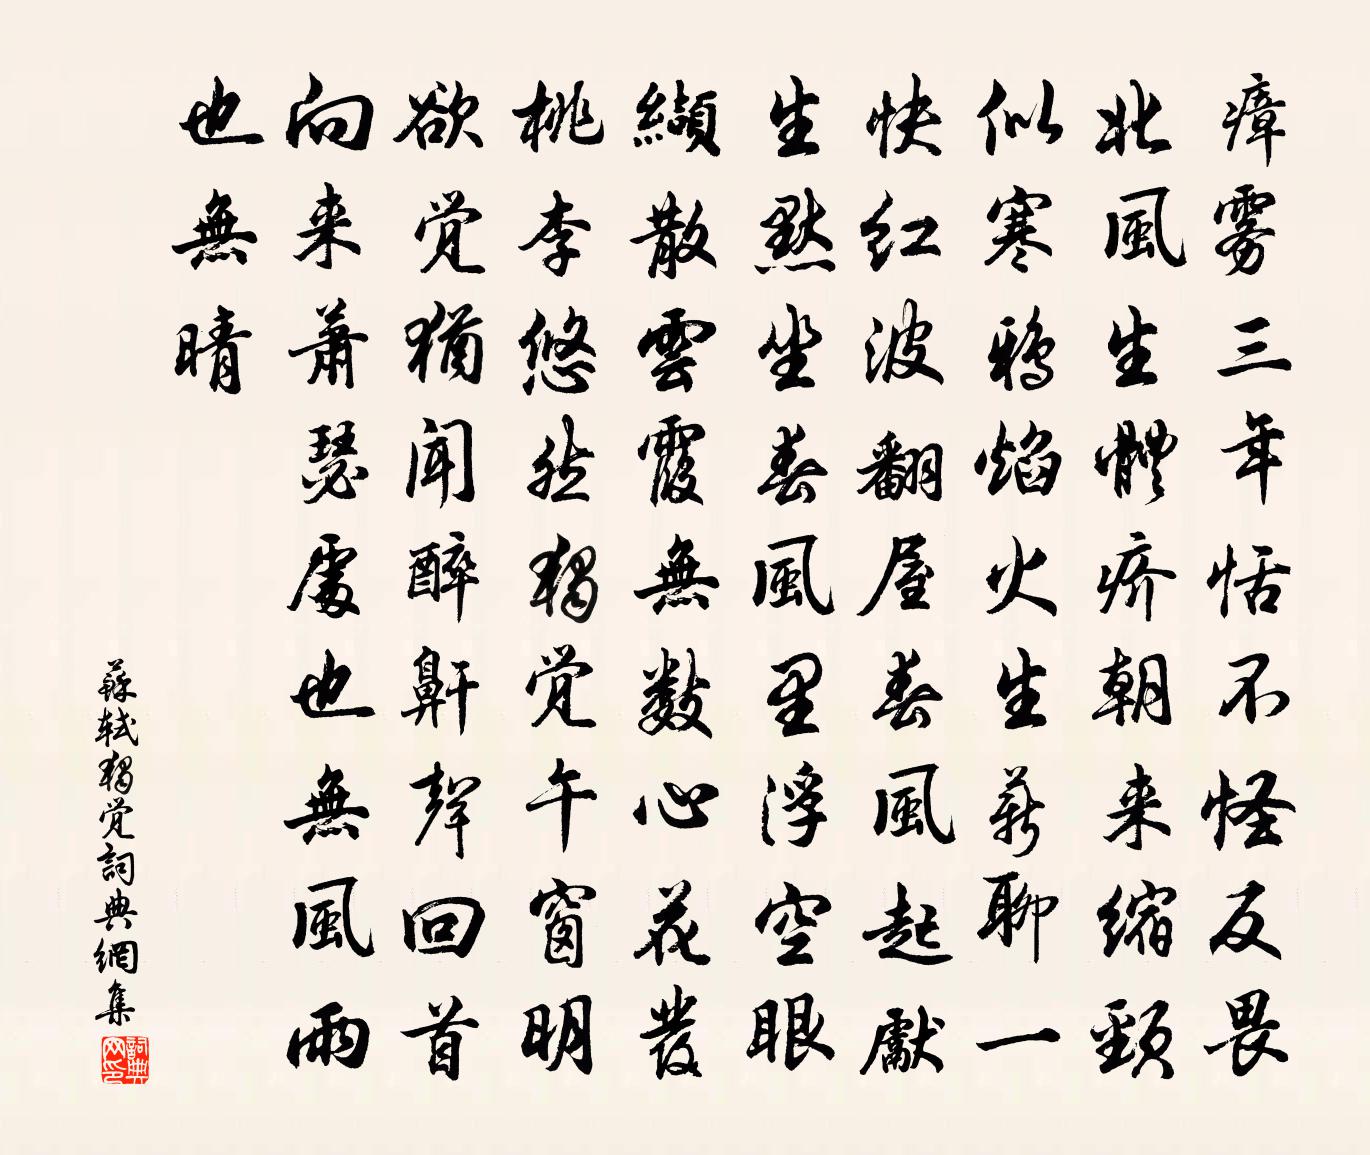 瘴雾三年恬不怪反畏
北風生體疥朝来缩頸
似寒鴉焰火生薪聊一
快红波翻屋春風起獻
生默坐春風里浮空眼
纈散雲霞無數心花發
桃李悠然獨觉午窗明
欲觉猶聞醉鼾聲回首
向来蕭瑟處也無風雨
也無晴
蘇軾獨觉詞典網集
詞典网印